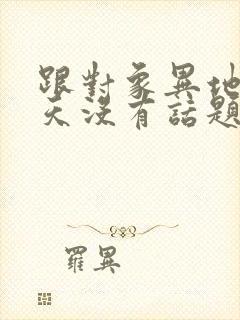 跟對象異地
天沒有話題
羅異